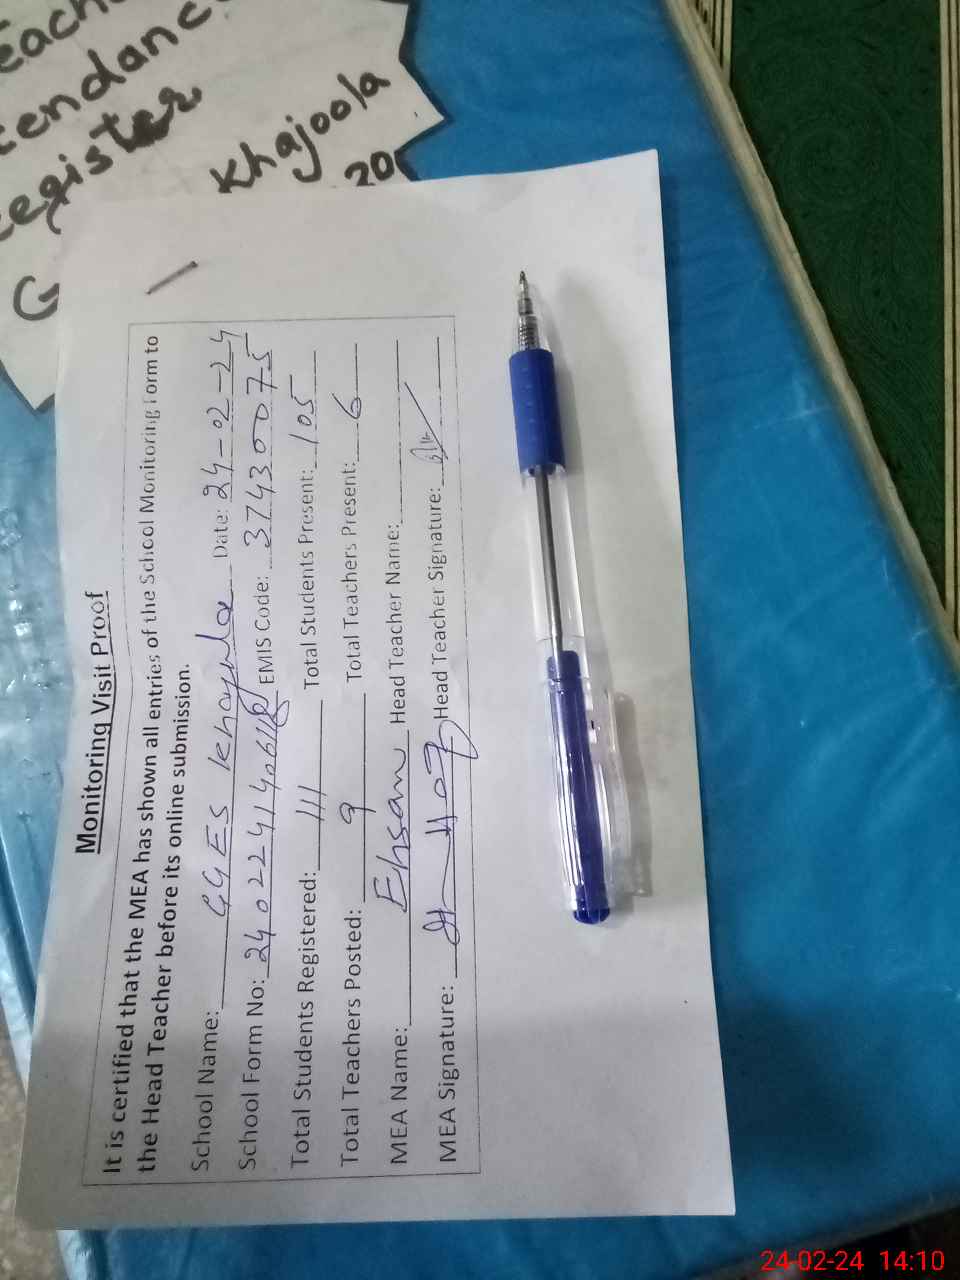 Register
Khajoola
20
G
Monitoring Visit Proof
It is certified that the MEA has shown all entries of the School Monitoring Form to
the Head Teacher before its online submission.
School Name: GGES Khayula Date: 24-02-24
School Form No: EMIS Code: 37430075
Total Students Registered: 111 Total Students Present: 105
Total Teachers Posted: 9 Total Teachers Present: 6
MEA Name: Ehsan Head Teacher Name:
MEA Signature: Head Teacher Signature:
24-02-24 14:10